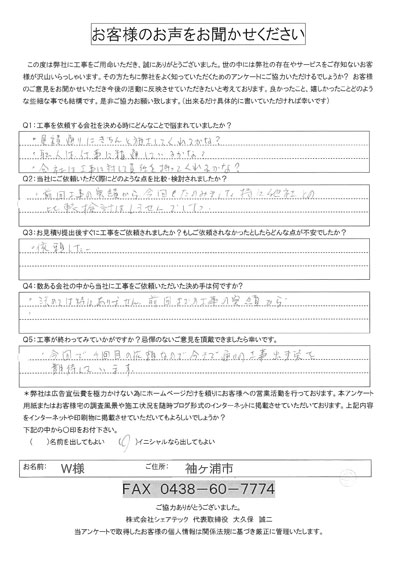 お客様のお声をお聞かせください
この度は弊社に工事をご用命いただき、誠にありがとうございます。世の中には弊社の存在やサービスをご存知ないお客
様が沢山いらっしゃいます。その方たちに弊社をよく知っていただくためのアンケートにご協力いただけるでしょうか? お客様
のご意見をお聞かせいただき今後の活動に反映させていただきたいと考えております。良かったこと、嬉しかったことどのよう
な些細な事でも結構です。是非ご協力お願い致します。(出来るだけ具体的に書いていただければ幸いです)
Q1:工事を依頼する会社を決める時にどんなことで悩まれていましたか?
・見積通りにきちんと施工してくれるかな?
・職人は仕事に精通しているかな?
・会社は工事に対して責任を持ってくれるかな?
Q2:当社にご依頼いただく際にどのような点を比較・検討されましたか?
・前回工事の実績から今回もたのみました 特に他社との
比較検討はしませんでした
Q3:お見積り提出後すぐに工事をご依頼されましたか?もしご依頼されなかったとしたらどんな点が不安でしたか?
・依頼した
Q4:数ある会社の中から当社に工事をご依頼いただいた決め手は何ですか?
・決めては特にありません 前回までの工事の実績から
Q5:工事が終わってみていかがですか?忌憚のないご意見を頂戴できましたら幸いです。
・今回で 回目の依頼なので今まで通りの工事出来栄を
期待しています
*弊社は広告宣伝費を極力かけない為にホームページだけを頼りにお客様への営業活動を行っております。本アンケート
用紙またはお客様宅の調査風景や施工状況を随時ブログ形式のインターネットに掲載させていただいております。上記内容
をインターネットや印刷物に掲載させていただいてもよろしいでしょうか?
下記の中から〇印をお付下さい。
( )名前を出してもよい (〇)イニシャルなら出してもよい
お名前: W様 ご住所: 袖ヶ浦市
FAX 0438-60-7774
ご協力ありがとうございました。
株式会社シェアテック 代表取締役 大久保 誠二
当アンケートで取得したお客様の個人情報は関係法規に基づき厳正に管理いたします。